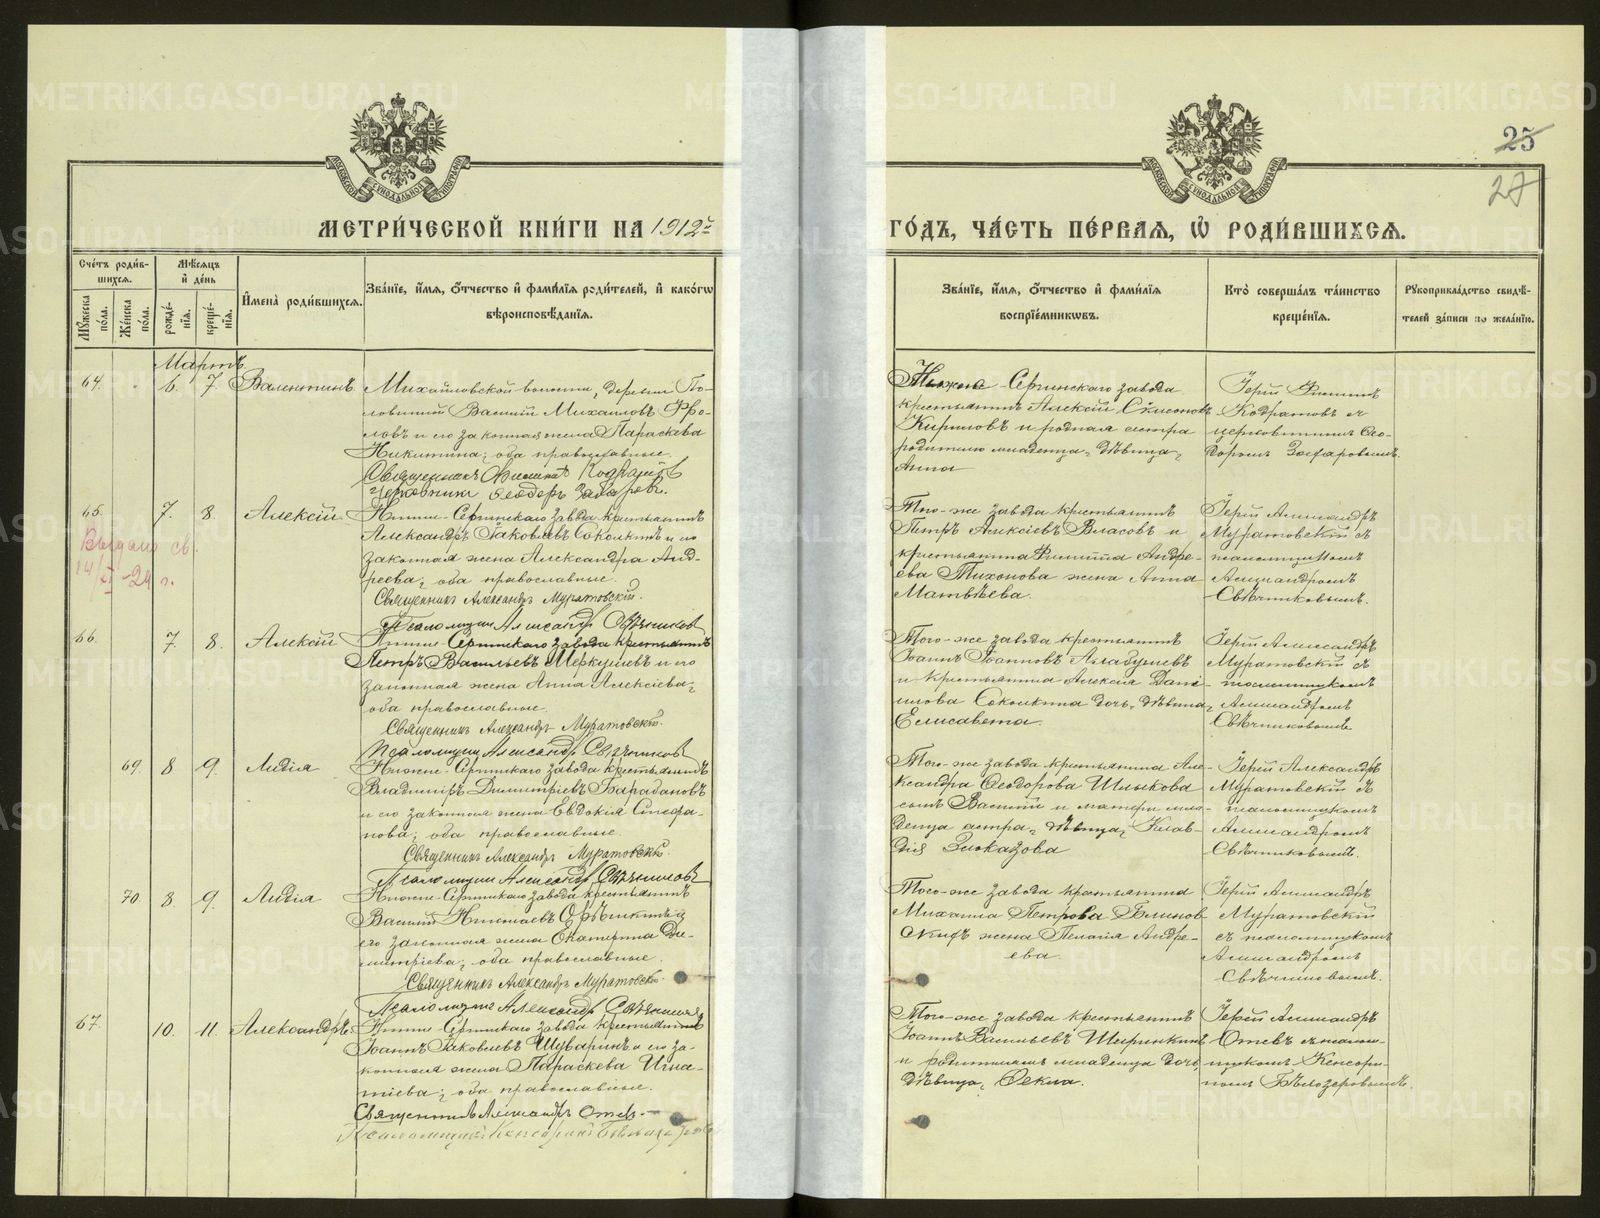 METRIKI.GASO-URAL.RU
25
27
МОСКОВСКОЙ СѴНОДАЛЬНОЙ ТИПОГРАФІИ
МЕТРИ́ЧЕСКОЙ КНИ́ГИ НА 1912й
ГО́ДЪ, ЧА́СТЬ ПЕ́РВАЯ, Ѡ҆ РОДИ́ВШИХСЯ.
Сче́тъ роди́вшихся.
Мѣ́сяцъ и҆ де́нь
Мꙋ́жеска по́ла.
Же́нска по́ла.
рожде́нїѧ.
креще́нїѧ.
И҆мена̀ роди́вшихсѧ.
Зва́нїе, и҆́мѧ, ѻ҆́тчество и҆ фами́лїѧ роди́телей, и҆ како́гѡ вѣроисповѣ́данїѧ.
Зва́нїе, и҆́мѧ, ѻ҆́тчество и҆ фами́лїѧ воспрїе́мникѡвъ.
Кто̀ соверша́лъ та́инство креще́нїѧ.
Рꙋкоприкла́дство свидѣ́телей за́писи по жела́нїю.
Мартъ
64. 6. 7. Валентинъ
Михайловской волости, деревни По-
ловинной Василій Михаиловъ Фро-
ловъ и его законная жена Параскева
Никитина; оба православные.
Священникъ Филиппъ Кодратовъ
Церковникъ Ѳеодоръ Захаровъ.
Нижне-Сергинскаго завода
крестьянинъ Алексій Симеоновъ
Кириловъ и родная сестра
родителю младенца, дѣвица,
Анна
Іерей Филиппъ
Кодратовъ съ
церковникомъ Ѳео-
доромъ Захаровымъ.
65. 7. 8. Алексій
Выдано св.
14/XI-24 г.
Нижне-Сергинскаго завода крестьянинъ
Александръ Іаковлевъ Сококинъ и его
законная жена Александра Анд-
реева; оба православные.
Священникъ Александръ Муратовскій.
Псаломщикъ Александръ Свѣчниковъ
Того-же завода крестьянинъ
Петръ Алексіевъ Власовъ и
крестьянина Филиппа Андре-
ева Тихонова жена Анна
Матвѣева.
Іерей Александръ
Муратовскій съ
псаломщикомъ
Александромъ
Свѣчниковымъ.
66. 7. 8. Алексій
Нижне-Сергинскаго завода крестьянинъ
Петръ Васильевъ Меркушевъ и его
законная жена Анна Алексіева;
оба православные.
Священникъ Александръ Муратовскій.
Псаломщикъ Александръ Свѣчниковъ
Того-же завода крестьянинъ
Іоаннъ Іоанновъ Алабушевъ
и крестьянина Алексія Дани-
илова Сококина дочь, дѣвица,
Елисавета.
Іерей Александръ
Муратовскій съ
псаломщикомъ
Александромъ
Свѣчниковымъ
69. 8. 9. Лидія
Нижне-Сергинскаго завода крестьянинъ
Владиміръ Димитріевъ Барабановъ
и его законная жена Евдокія Стефа-
нова; оба православные.
Священникъ Александръ Муратовскій.
Псаломщикъ Александръ Свѣчниковъ
Того-же завода крестьянина Але-
ксандра Ѳеодорова Шлыкова
сынъ Василій и матери мла-
денца сестра, дѣвица, Клав-
дія Злоказова
Іерей Александръ
Муратовскій съ
псаломщикомъ
Александромъ
Свѣчниковымъ.
70. 8. 9. Лидія
Нижне-Сергинскаго завода крестьянинъ
Василій Николаевъ Орѣшкинъ и
его законная жена Екатерина Ди-
митріева; оба православные.
Священникъ Александръ Муратовскій.
Псаломщикъ Александръ Свѣчниковъ
Того-же завода крестьянина
Михаила Петрова Блинов-
скихъ жена Пелагія Андре-
ева.
Іерей Александръ
Муратовскій
съ псаломщикомъ
Александромъ
Свѣчниковымъ.
67. 10. 11. Александръ
Нижне-Сергинскаго завода крестьянинъ
Іоаннъ Іаковлевъ Шуваринъ и его за-
конная жена Параскева Игна-
тіева; оба православные.
Священникъ Александръ Отевъ.
Псаломщикъ Кенсоринъ Бѣлозеровъ
Того-же завода крестьянинъ
Іоаннъ Васильевъ Ширинкинъ
и родителямъ младенца дочь,
дѣвица, Ѳекла.
Іерей Александръ
Отевъ съ псалом-
щикомъ Кенсори-
номъ Бѣлозеровымъ.